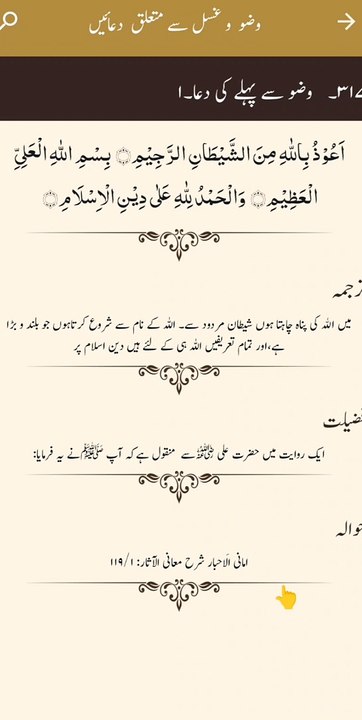 وضو و غسل سے متعلق دعائیں
۳۱۷۔ وضو سے پہلے کی دعا۔۱
اَعُوْذُ بِاللّٰهِ مِنَ الشَّيْطَانِ الرَّجِيْمِ۝ بِسْمِ اللّٰهِ الْعَلِيِّ
الْعَظِيْمِ۝ وَالْحَمْدُ لِلّٰهِ عَلٰى دِيْنِ الْاِسْلَامِ۝
ترجمہ
میں اللہ کی پناہ چاہتا ہوں شیطان مردود سے۔ اللہ کے نام سے شروع کرتاہوں جو بلند و بڑا
ہے،اور تمام تعریفیں اللہ ہی کے لئے ہیں دین اسلام پر
فضیلت
ایک روایت میں حضرت علی رضی اللہ عنہ سے منقول ہے کہ آپ ﷺ نے یہ فرمایا:
حوالہ
امانی الاَحبار شرح معانی الآثار: ۱/ ۱۱۹